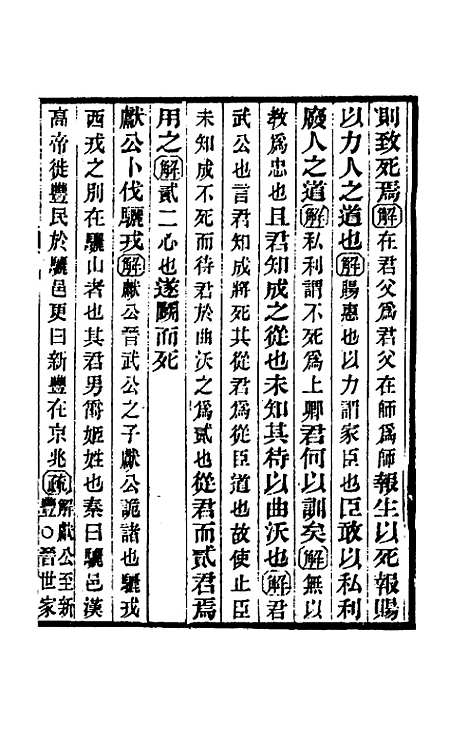 則致死焉解在君父為君父在師為師報生以死報賜
以力人之道也解賜惠也以力謂家臣也臣敢以私利
廢人之道解私利謂不死為上卿君何以訓矣解無以
教為忠也且君知成之從也未知其待以曲沃也解君
武公也言君知成將死其從君為從臣道也故使止臣
未知成不死而待君於曲沃之為貳也從君而貳君焉
用之解貳二心也遂鬭而死
獻公卜伐驪戎解獻公晉武公之子獻公詭諸也驪戎
西戎之別在驪山者也其君男爵姬姓也秦曰驪邑漢
高帝徙豐民於驪邑更曰新豐在京兆疏解獻公至新
豐○晉世家